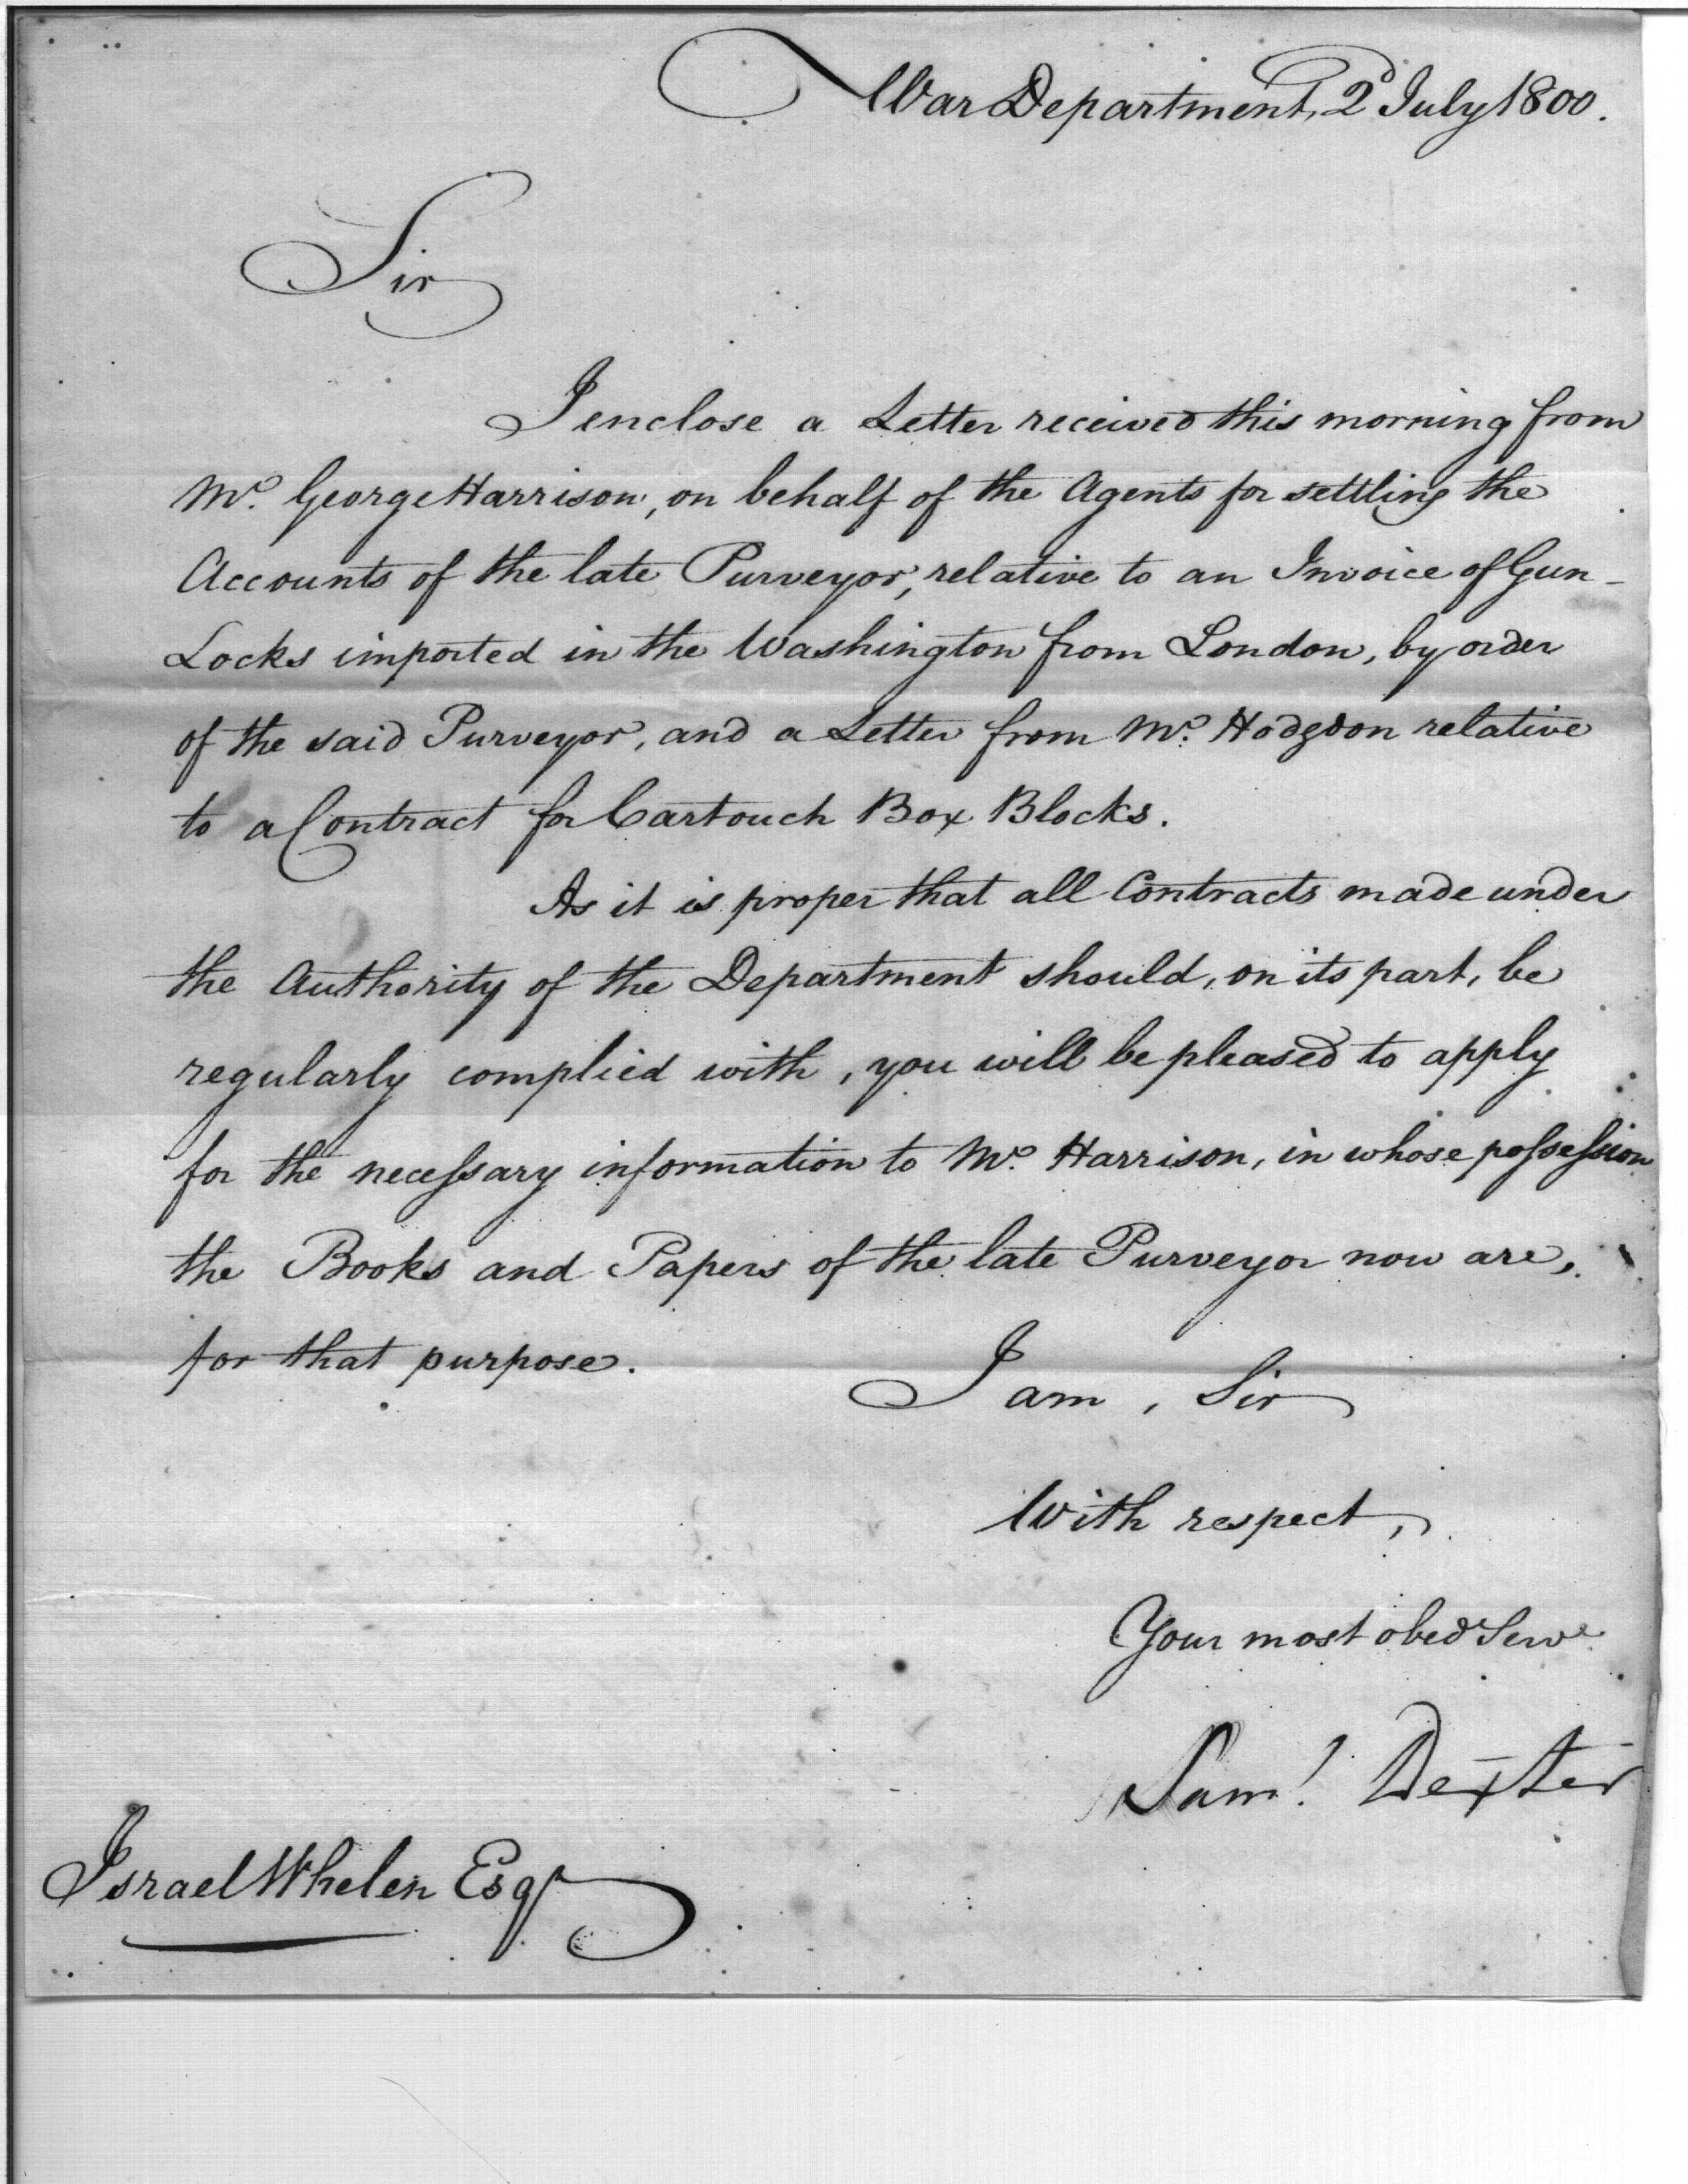 War Department, 2d July 1800.
Sir
I enclose a Letter received this morning from
Mr. George Harrison, on behalf of the Agents for settling the
Accounts of the late Purveyor, relative to an Invoice of Gun-
Locks imported in the Washington from London, by order
of the said Purveyor, and a Letter from Mr. Hodgdon relative
to a Contract for Cartouch Box Blocks.
As it is proper that all Contracts made under
the Authority of the Department should, on its part, be
regularly complied with, you will be pleased to apply
for the neceſsary information to Mr. Harrison, in whose poſseſsion
the Books and Papers of the late Purveyor now are,
for that purpose.
I am, Sir
With respect,
Your most obed Servt
Saml. Dexter
Israel Whelen Esqr